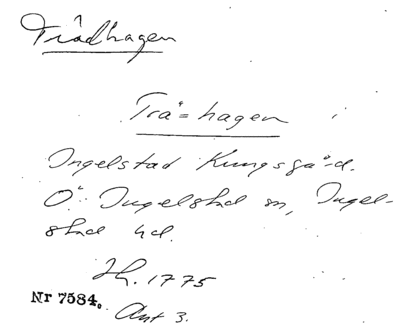 Trädhagen
Trä°=hagen
Ingelstad Kungsgård.
Ö. Ingelstad sn, Ingel-
stad hd.
Jh. 1775
Nr 7584.
Akt 3.